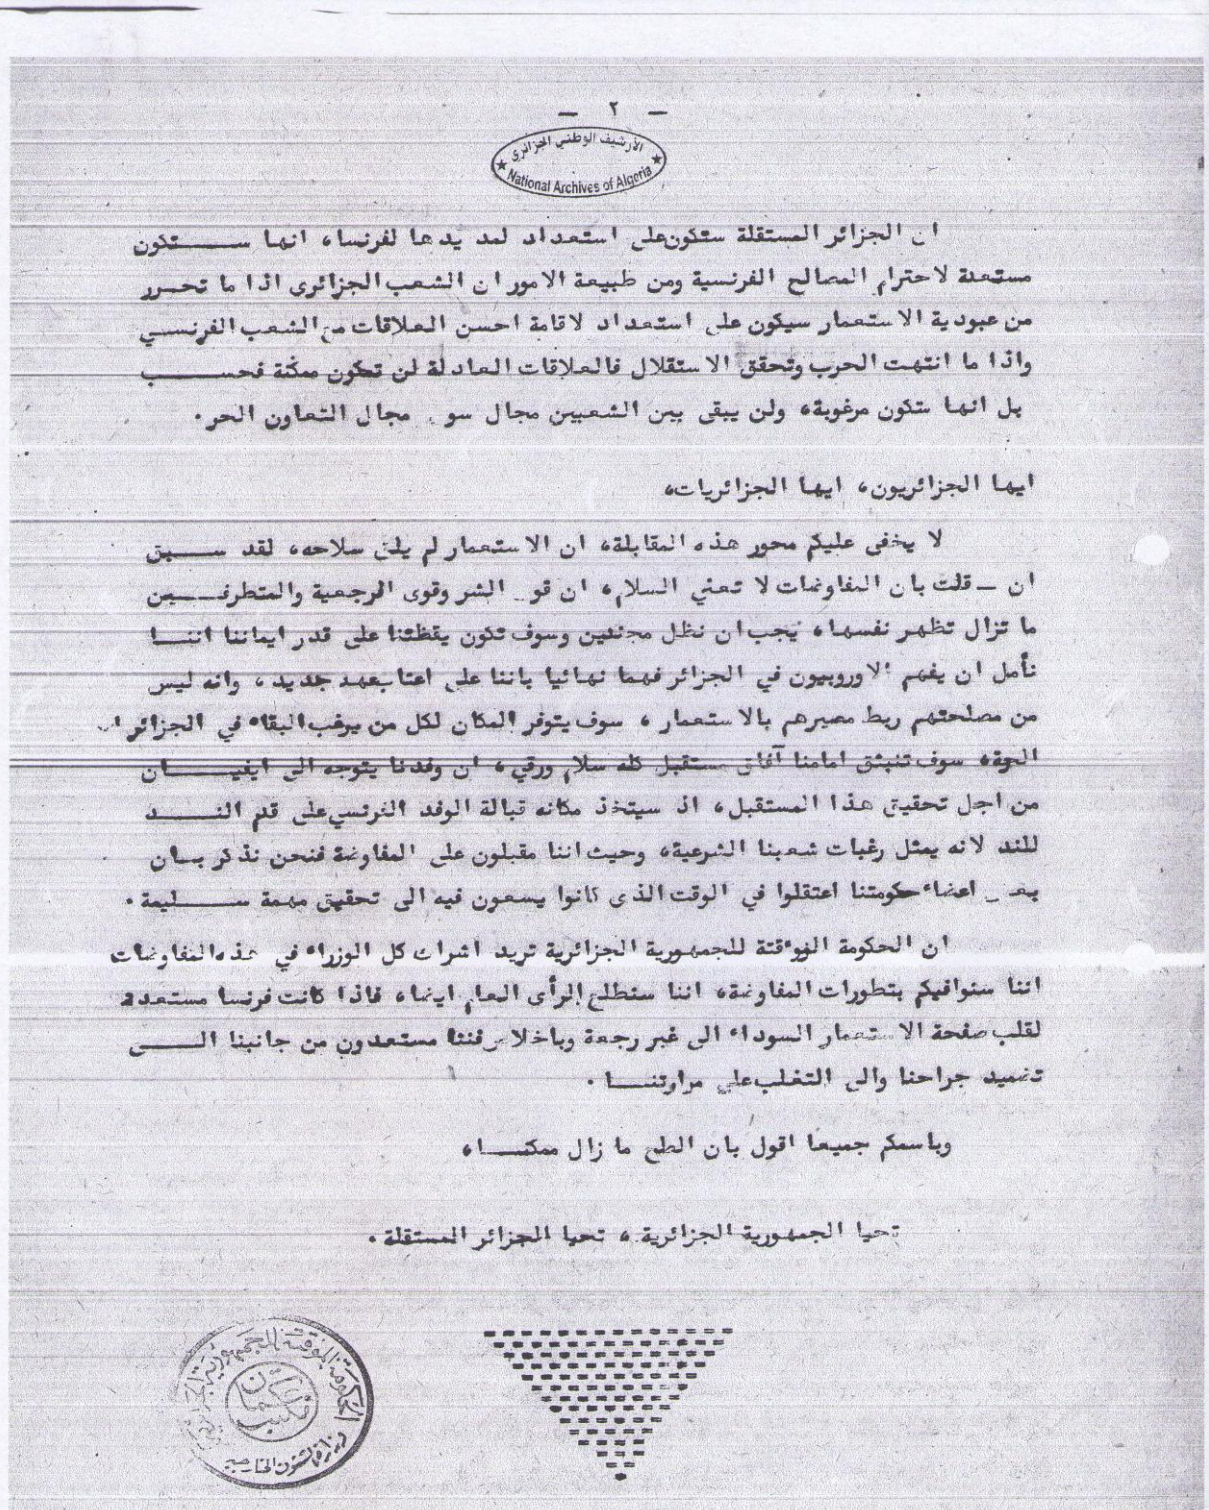 — ٢ —
الأرشيف الوطني الجزائري
National Archives of Algeria
ان الجزائر المستقلة ستكون على استعداد لمد يدها لفرنسا، انها ستكون
مستعدة لاحترام المصالح الفرنسية ومن طبيعة الامور ان الشعب الجزائرى اذا ما تحرر
من عبودية الاستعمار سيكون على استعداد لاقامة احسن العلاقات مع الشعب الفرنسي
واذا ما انتهت الحرب وتحقق الاستقلال فالعلاقات العادلة لن تكون ممكنة فحسب
بل انها ستكون مرغوبة، ولن يبقى بين الشعبين مجال سو مجال التعاون الحر.
ايها الجزائريون، ايها الجزائريات،
لا يخفى عليكم محور هذه المقابلة، ان الاستعمار لم يلق سلاحه، لقد سبق
ان — قلت بان المفاوضات لا تعني السلام، ان قو الشر وقوى الرجعية والمتطرفين
ما تزال تظهر نفسها، يجب ان نظل مجندين وسوف تكون يقظتنا على قدر ايماننا اننا
نأمل ان يفهم الاوروبيون في الجزائر فهما نهائيا باننا على اعتاب عهد جديد، وانه ليس
من مصلحتهم ربط مصيرهم بالاستعمار، سوف يتوفر المكان لكل من يرغب البقاء في الجزائر
الحرة، سوف تنبثق امامنا آفاق مستقبل كله سلام ورقي، ان وفدنا يتوجه الى ايفيان
من اجل تحقيق هذا المستقبل، اذ سيتخذ مكانه قبالة الوفد الفرنسي على قدم الند
للند لانه يمثل رغبات شعبنا الشرعية، وحيث اننا مقبلون على المفاوضة فنحن نذكر بان
بعض اعضاء حكومتنا اعتقلوا في الوقت الذى كانوا يسعون فيه الى تحقيق مهمة سليمة.
ان الحكومة المؤقتة للجمهورية الجزائرية تريد اشراك كل الوزراء في هذه المفاوضات
اننا سنوافيكم بتطورات المفاوضة، اننا سنطلع الرأى العام ايضا، فاذا كانت فرنسا مستعدة
لقلب صفحة الاستعمار السوداء الى غير رجعة وباخلاص فنثا مستعدون من جانبنا الى
تضميد جراحنا والى التغلب على مراوتنا.
وباسمكم جميعا اقول بان الطح ما زال ممكنا،
تحيا الجمهورية الجزائرية، تحيا الجزائر المستقلة.
الحكومة المؤقتة للجمهورية الجزائرية
وزارة الشئون الخارجية
مكتب